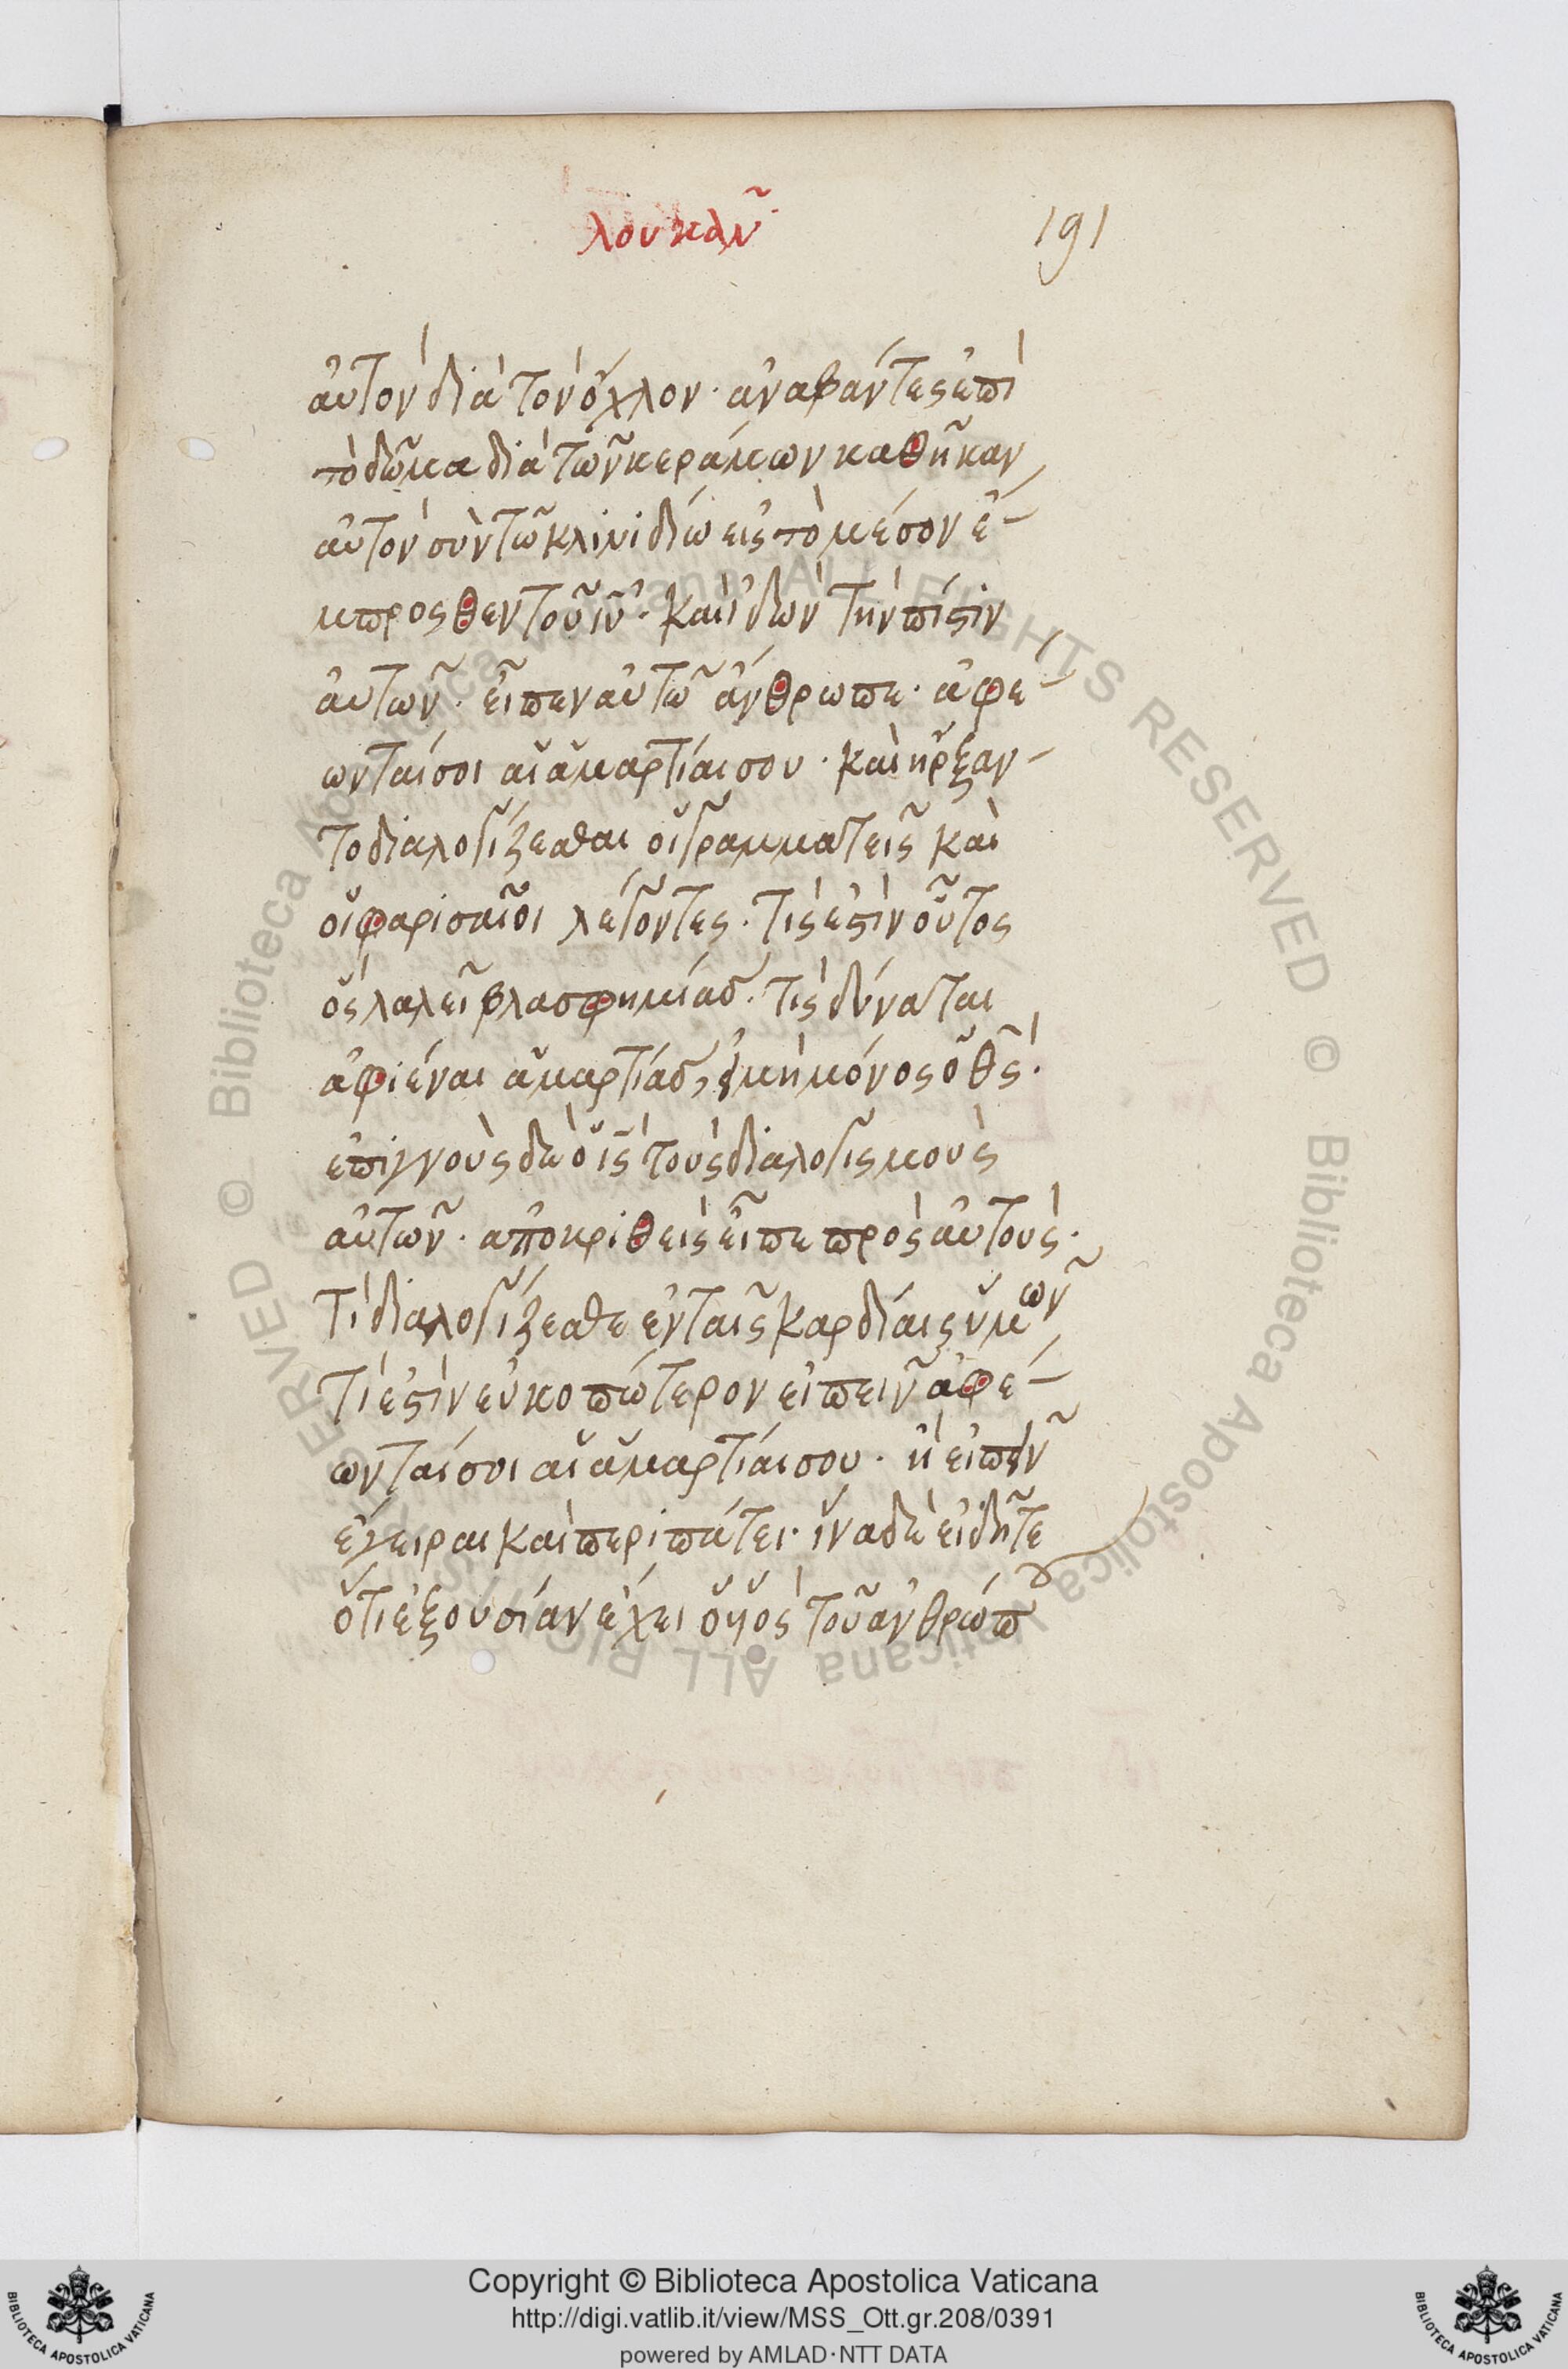 λουκᾶν
191
αὐτὸν διὰ τὸν ὄχλον· ἀναβάντες ἐπὶ
τὸ δῶμα διὰ τῶν κεράμων καθῆκαν
αὐτὸν σὺν τῶ κλινιδίω εἰς τὸ μέσον ἔ-
μπροσθεν τοῦ ιυ· καὶ ἰδὼν τὴν πίστιν
αὐτῶν· εἶπεν αὐτῶ ἄνθρωπε· ἀφέ-
ωνταί σοι αἱ ἁμαρτίαι σου· καὶ ἤρξαν-
το διαλογίζεσθαι οἱ γραμματεῖς καὶ
οἱ φαρισαῖοι λέγοντες· τίς ἐστὶν οὗτος
ὃς λαλεῖ βλασφημίας· τίς δύναται
ἀφιέναι ἁμαρτίας, εἰ μὴ μόνος ὁ θς·
ἐπιγνοὺς δὲ ὁ ις τοὺς διαλογισμοὺς
αὐτῶν· ἀποκριθεὶς εἶπε πρὸς αὐτούς·
τί διαλογίζεσθε ἐν ταῖς καρδίαις ὑμῶν
τί ἐστὶν εὐκοπώτερον εἰπεῖν ἀφέ-
ωνταί σοι αἱ ἁμαρτίαι σου· ἢ εἰπεῖν
ἔγειραι καὶ περιπάτει· ἵνα δὲ εἰδῆτε
ὅτι ἐξουσίαν ἔχει ὁ υἱὸς τοῦ ἀνθρώπου
Copyright © Biblioteca Apostolica Vaticana
http://digi.vatlib.it/view/MSS_Ott.gr.208/0391
powered by AMLAD·NTT DATA
BIBLIOTECA APOSTOLICA VATICANA
BIBLIOTECA APOSTOLICA VATICANA
© Biblioteca Apostolica Vaticana ALL RIGHTS RESERVED
© Biblioteca Apostolica Vaticana ALL RIGHTS RESERVED